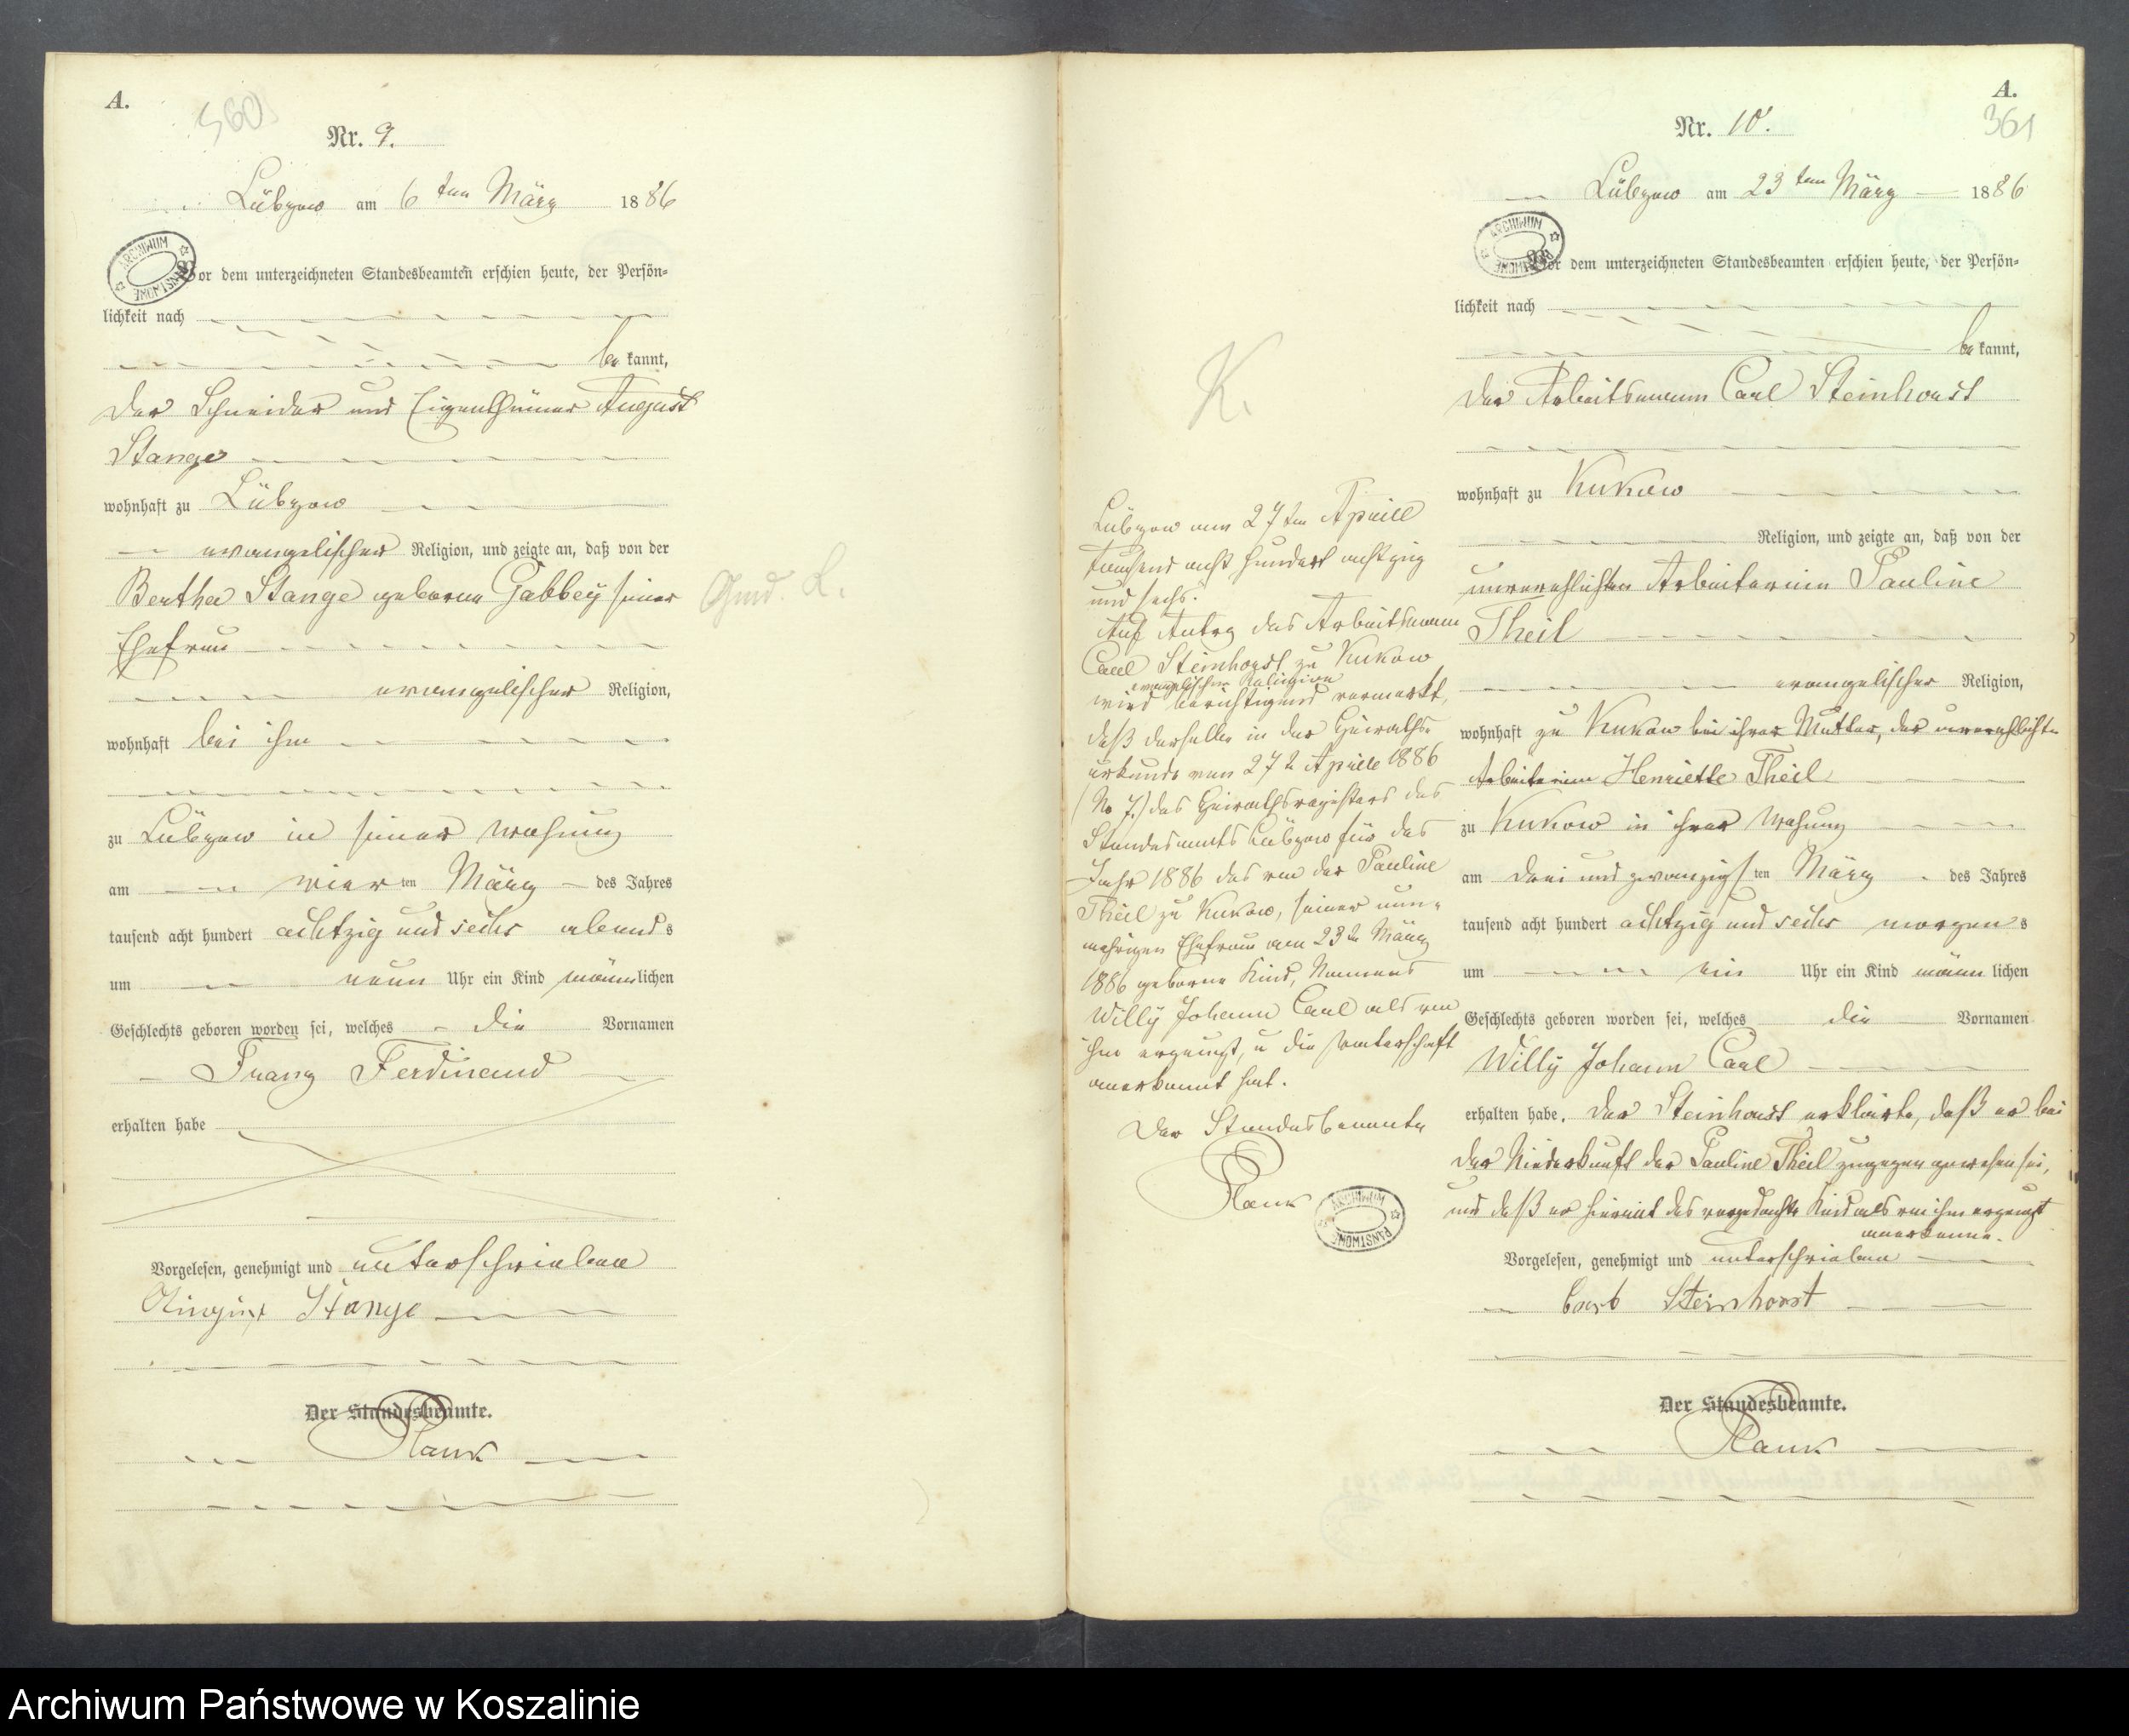 A.
360
Nr. 9.
Lübzow am 6 ten März 1886
ARCHIWUM PAŃSTWOWE
Vor dem unterzeichneten Standesbeamten erschien heute, der Persön-
lichkeit nach
be kannt,
der Schneider und Eigenthümer August
Stange
wohnhaft zu Lübzow
evangelischer Religion, und zeigte an, daß von der
Bertha Stange geborne Gabbey seiner
Ehefrau
evangelischer Religion,
wohnhaft bei ihm
zu Lübzow in seiner Wohnung
am vierten März des Jahres
tausend acht hundert achtzig und sechs abends
um neun Uhr ein Kind männlichen
Geschlechts geboren worden sei, welches die Vornamen
Franz Ferdinand
erhalten habe
Vorgelesen, genehmigt und unterschrieben
August Stange
Der Standesbeamte.
Plank
A.
361
Nr. 10.
Lübzow am 23 ten März 1886
ARCHIWUM PAŃSTWOWE
Vor dem unterzeichneten Standesbeamten erschien heute, der Persön-
lichkeit nach
be kannt,
der Arbeitsmann Carl Steinhorst
wohnhaft zu Kukow
Religion, und zeigte an, daß von der
unverehlichten Arbeiterin Pauline
Theil
evangelischer Religion,
wohnhaft zu Kukow bei ihrer Mutter, der unverehlichte
Arbeiterin Henriette Theil
zu Kukow in ihrer Wohnung
am drei und zwanzigsten März des Jahres
tausend acht hundert achtzig und sechs morgens
um ein Uhr ein Kind männlichen
Geschlechts geboren worden sei, welches die Vornamen
Willy Johann Carl
erhalten habe. Der Steinhorst erklärte, daß er bei
der Niederkunft der Pauline Theil zugegen gewesen sei,
und daß er hiermit das vorgedachte Kind als von ihm erzeugt
anerkenne.
Vorgelesen, genehmigt und unterschrieben
Carl Steinhorst
Der Standesbeamte.
Plank
K.
Lübzow am 27 ten Aprill
Tausend acht hundert achtzig
und sechs.
Auf Antrg des Arbeitsmann
Carl Steinhorst zu Kukow
evangelischer Religion
wird berichtigend vermerkt,
daß derselbe in der Heiraths-
urkunde vom 27 t Aprill 1886
(No 7.) des Heirathsregisters des
Standesamts Lübzow für das
Jahr 1886 das von der Pauline
Theil zu Kukow, seiner nun-
mehrigen Ehefrau am 23 t März
1886 geborne Kind, Namens
Willy Johann Carl als von
ihm erzeugt, u die Vaterschaft
anerkannt hat.
Der Standesbeamte
Plank
ARCHIWUM PAŃSTWOWE
Archiwum Państwowe w Koszalinie